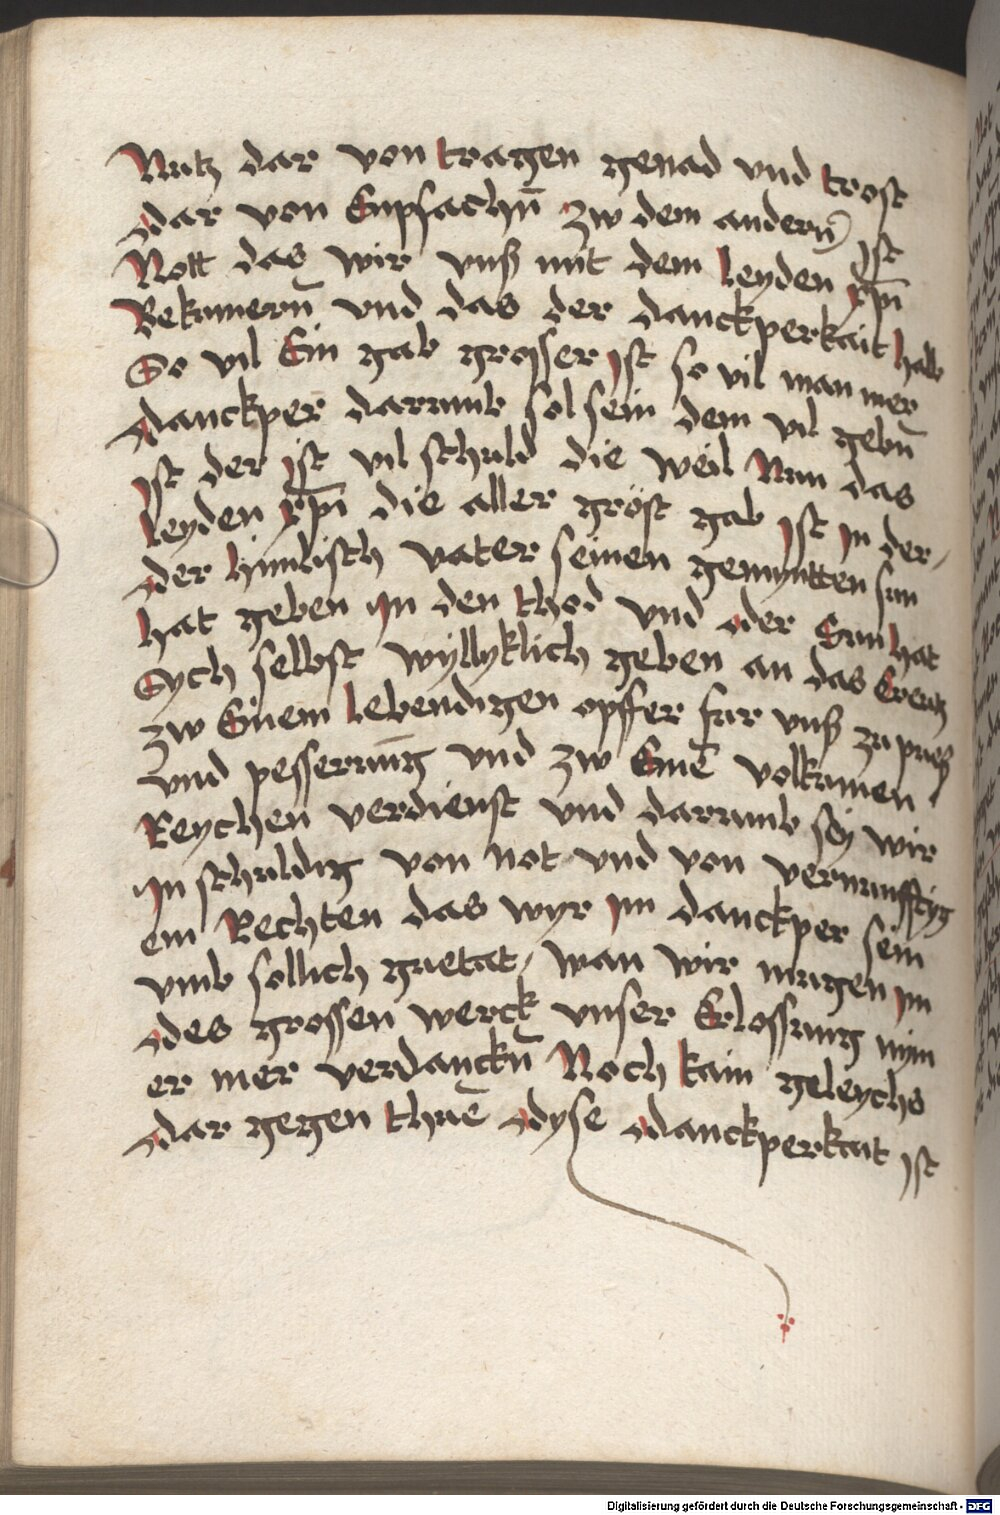 Nutz dar von tragen genad vnd trost
dar von Enpfachn̄ zw dem andern̄ ist
Nott das wir vnß mit dem leyden xp̄i
Bekumern̄ vnd das der danckperkait halb
So vil Ein gab grosser ist so vil man mer
danckper darumb sol sein dem vil gebn̄
ist der ist vil schuld die weil Nun das
leyden xp̄i die aller gröst gab ist in der /
der himlisch vater seinen gemyntten sun
hat geben in den thod vnd der Sun hat
Sych selbst wyllyklich geben an das Creutz
zw Einem lebendigen opffer fur vnß zu pueß
vnd pesserunḡ vnd zw Einē volkumen
Reychen verdienst vnd darumb sey wir
in schuldig von not vnd von vernunfftyg
em Rechten das wyr im danckper sein
vmb sollich guetat / wan wir mugen im
des grossen werck vnser Erlossung nym
er mer verdanckn̄ Noch kain geleychs
dar gegen thuē dyse danckperkait ist
Digitalisierung gefördert durch die Deutsche Forschungsgemeinschaft - DFG